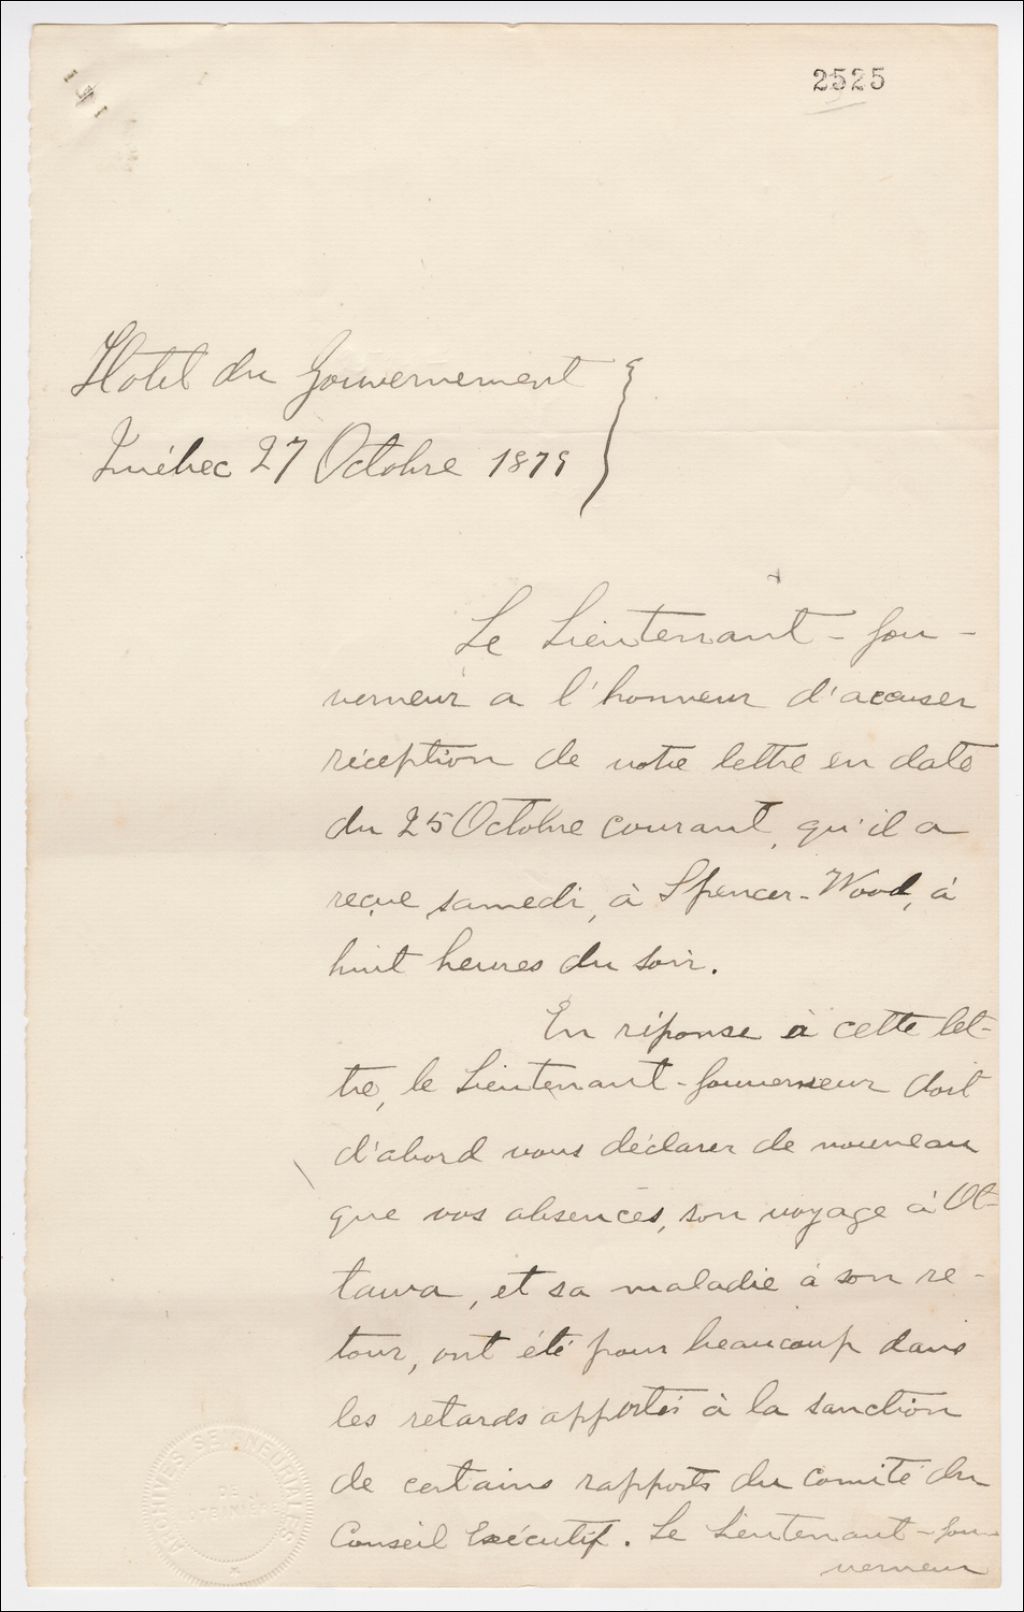 2525
Hotel du Gouvernement
Québec 27 Octobre 1879
Le Lieutenant-Gou-
verneur a l'honneur d'accuser
réception de votre lettre en date
du 25 Octobre courant, qu'il a
reçue samedi, à Spencer-Wood, à
huit heures du soir.
En réponse à cette let-
tre, le Lieutenant-Gouverneur doit
d'abord vous déclarer de nouveau
que vos absences, son voyage à Ot-
tawa, et sa maladie à son re-
tour, ont été pour beaucoup dans
les retards apportés à la sanction
de certains rapports du Comité du
Conseil Exécutif. Le Lieutenant-Gou
verneur
ARCHIVES SEIGNEURIALES
DE